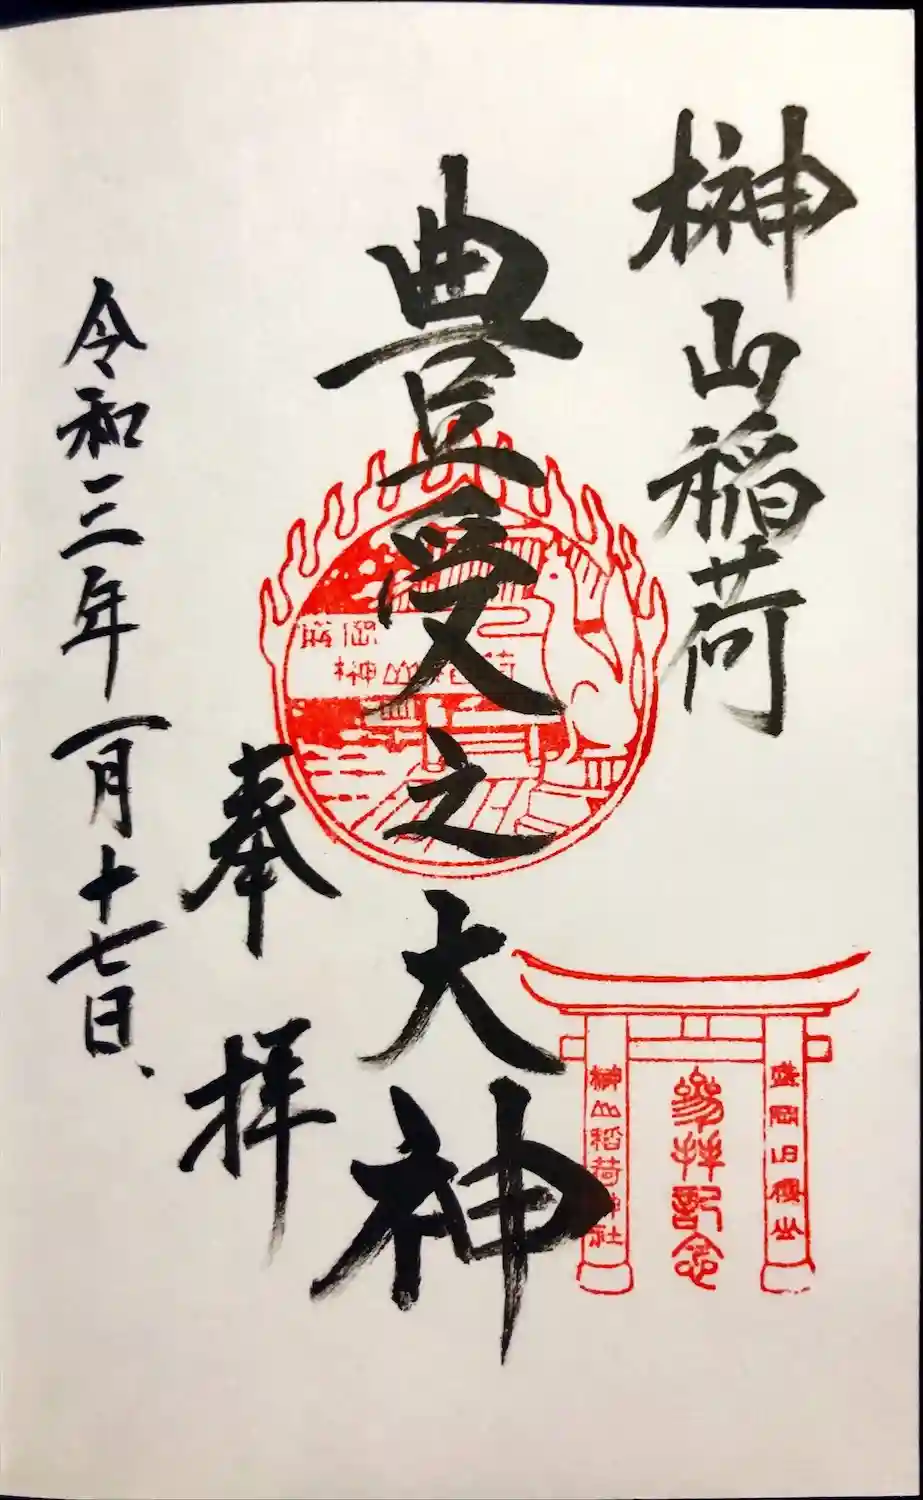 榊山稲荷
豊受之大神
奉拝
令和三年一月十七日、
盛岡
榊山稲荷
盛岡旧櫻山
参拝記念
榊山稲荷神社